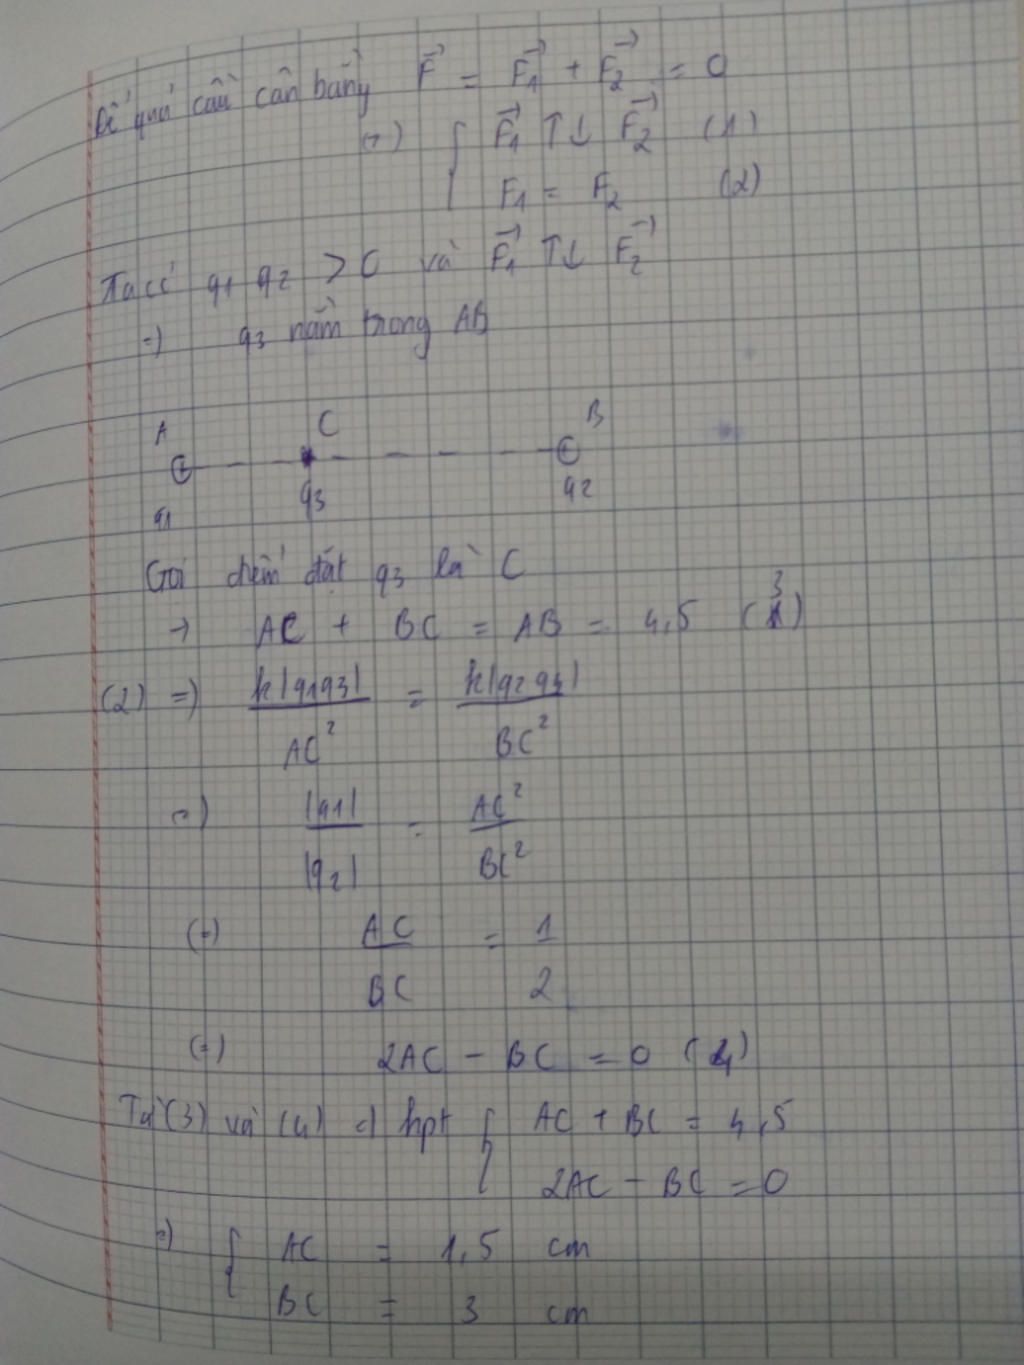 Để quả cầu cân bằng F⃗ = F₁⃗ + F₂⃗ = 0
(=) { F₁⃗ ↑↓ F₂⃗ (1)
F₁ = F₂ (2)
Ta có q₁ q₂ > 0 và F₁⃗ ↑↓ F₂⃗
=) q₃ nằm trong AB
A C B
q₁ q₃ q₂
Gọi điểm đặt q₃ là C
→ AC + BC = AB = 4,5 (3)
(2) =) k|q₁q₃| / AC² = k|q₂q₃| / BC²
=) |q₁| / |q₂| = AC² / BC²
(=) AC / BC = 1 / 2
(=) 2AC - BC = 0 (4)
Từ (3) và (4) có hpt { AC + BC = 4,5
2AC - BC = 0
=) { AC = 1,5 cm
BC = 3 cm